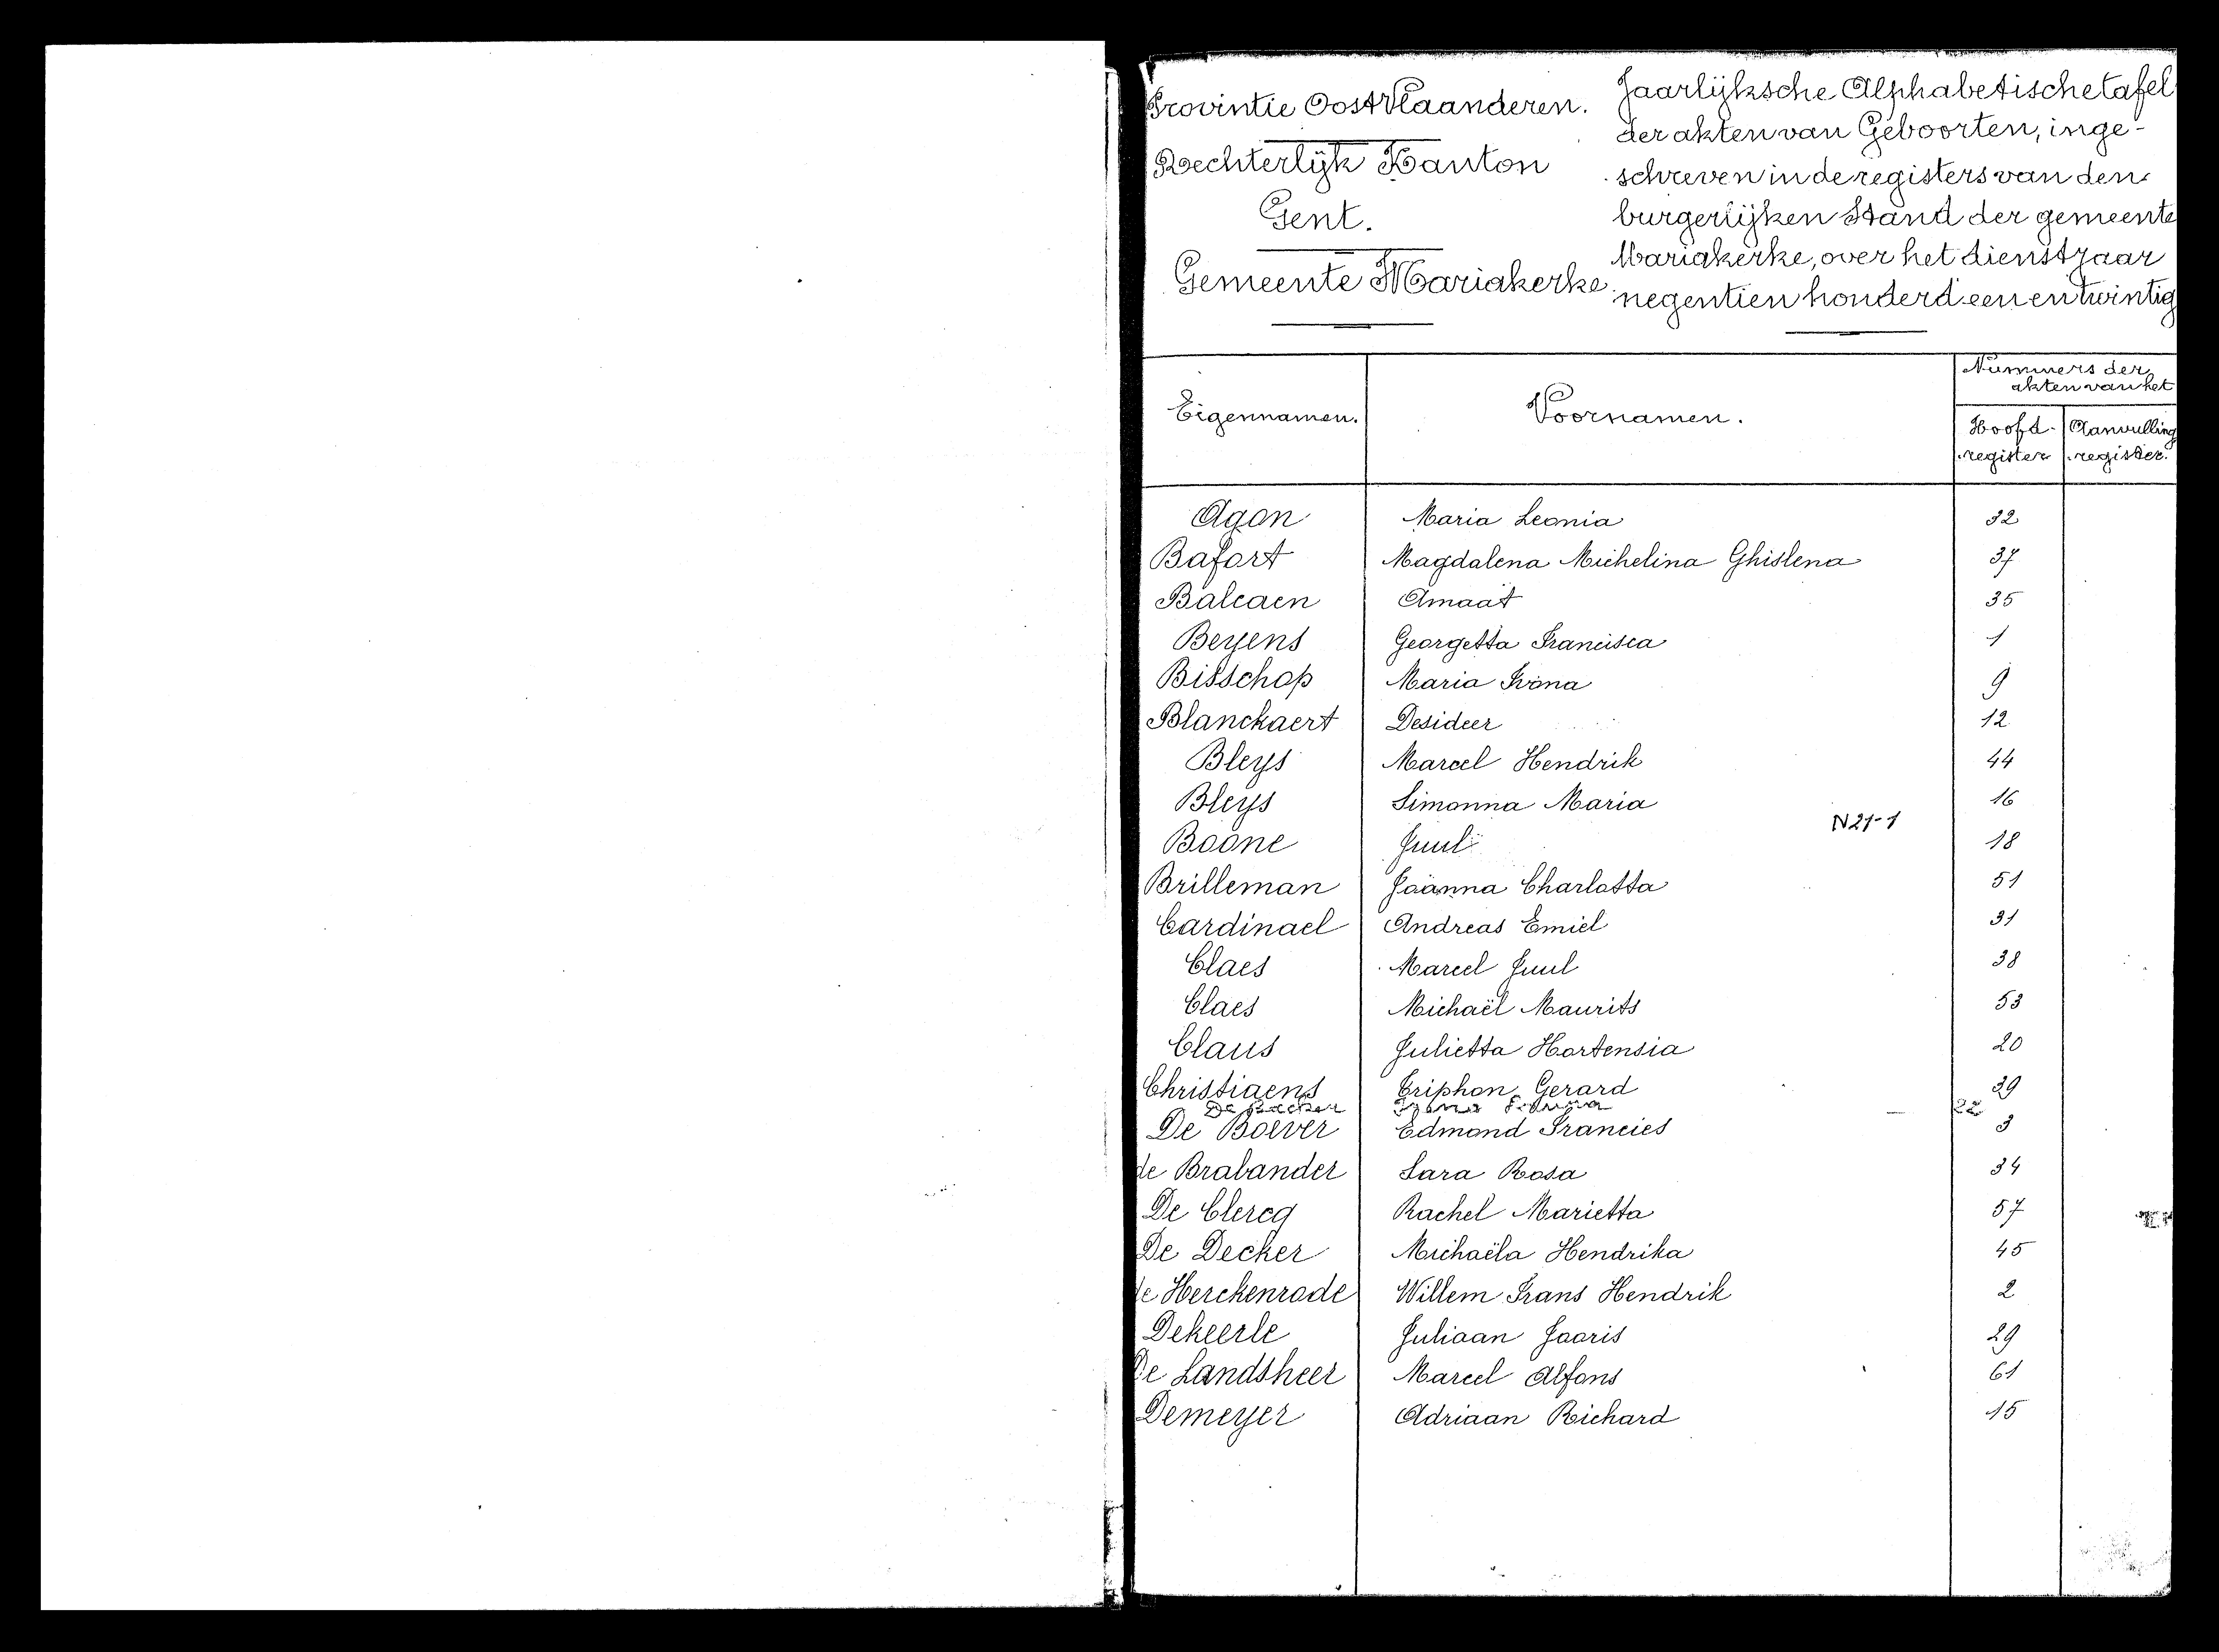 Provintie OostVlaanderen.
Rechterlijk Kanton
Gent.
Gemeente Mariakerke.
Jaarlijksche Alphabetische tafel
der akten van Geboorten, inge-
schreven in de registers van den
burgerlijken Stand der gemeente
Mariakerke, over het dienstjaar
negentien honderd een en twintig
Eigennamen. Voornamen. Nummers der akten van het
Hoofd-register Aanvulling register.
Agon Maria Leonia 32
Bafort Magdalena Michelina Ghislena 37
Balcaen Amaat 35
Beyens Georgetta Francisca 1
Bisschop Maria Ivona 9
Blanckaert Desideer 12
Bleys Marcel Hendrik 44
Bleys Simonna Maria 16
N21-1
Boone Juul 18
Brilleman Joanna Charlotta 51
Cardinael Andreas Emiel 31
Claes Marcel Juul 38
Claes Michaël Maurits 53
Claus Julietta Hortensia 20
Christiaens Triphon Gerard 39
De Backer 22
De Boever Edmond Francies 3
de Brabander Sara Rosa 34
De Clercq Rachel Marietta 57
De Decker Michaëla Hendrika 45
de Herckenrode Willem Frans Hendrik 2
Dekeerle Juliaan Jooris 29
De Landsheer Marcel Alfons 61
Demeyer Adriaan Richard 15